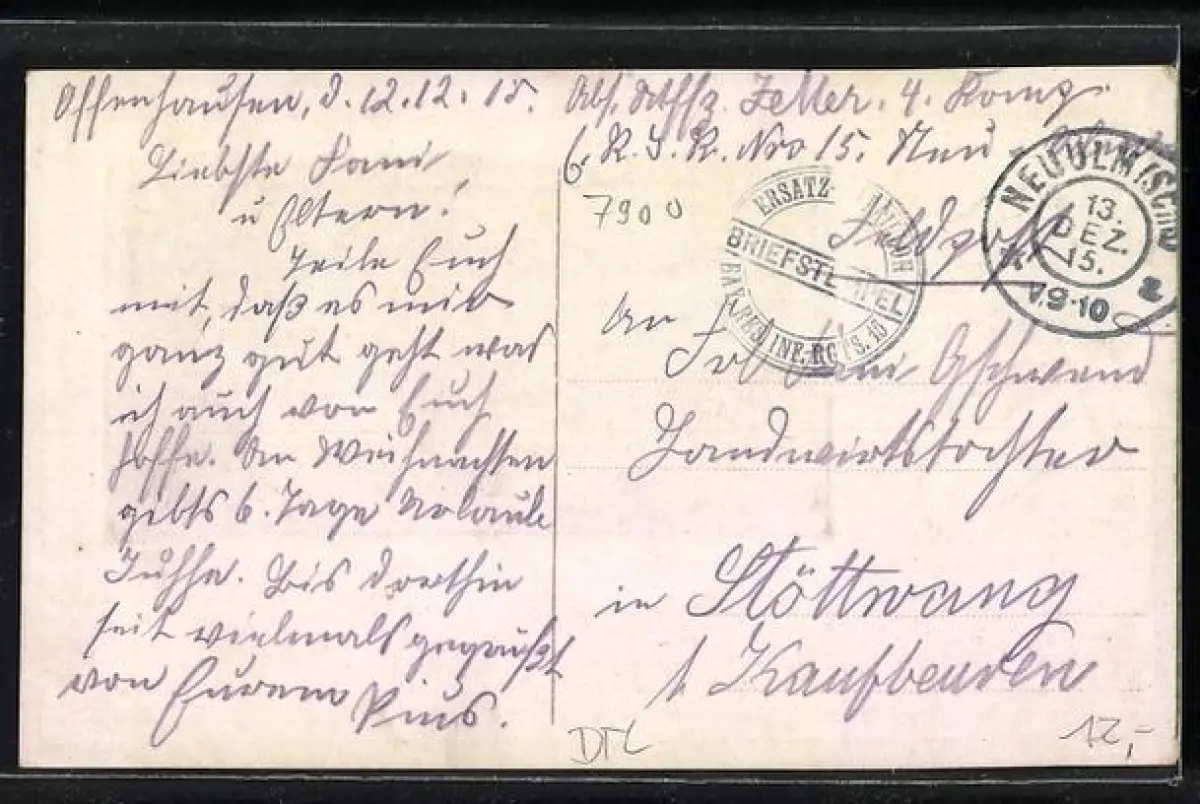 Offenhausen, d. 12.12.15.
Liebste Fani
u Eltern!
Teile Euch
mit, daß es mir
ganz gut geht was
ich auch von Euch
hoffe. An Weihnachten
gibts 6. Tage Urlaub
Juhhe. Bis dorthin
seit vielmals gegrüßt
von Eurem Pius.
Abs. Utffz. Zeller. 4. Komp.
6. R. J. R. Nro 15. Neu-
7900
ERSATZ-
BRIEFSTEMPEL
INF. RGTS. 15
NEUULM
13.
DEZ.
15.
2
Feldpost
An
Gschwend
Landwirtstochter
in Stöttwang
b Kaufbeuren
DTL
12,-